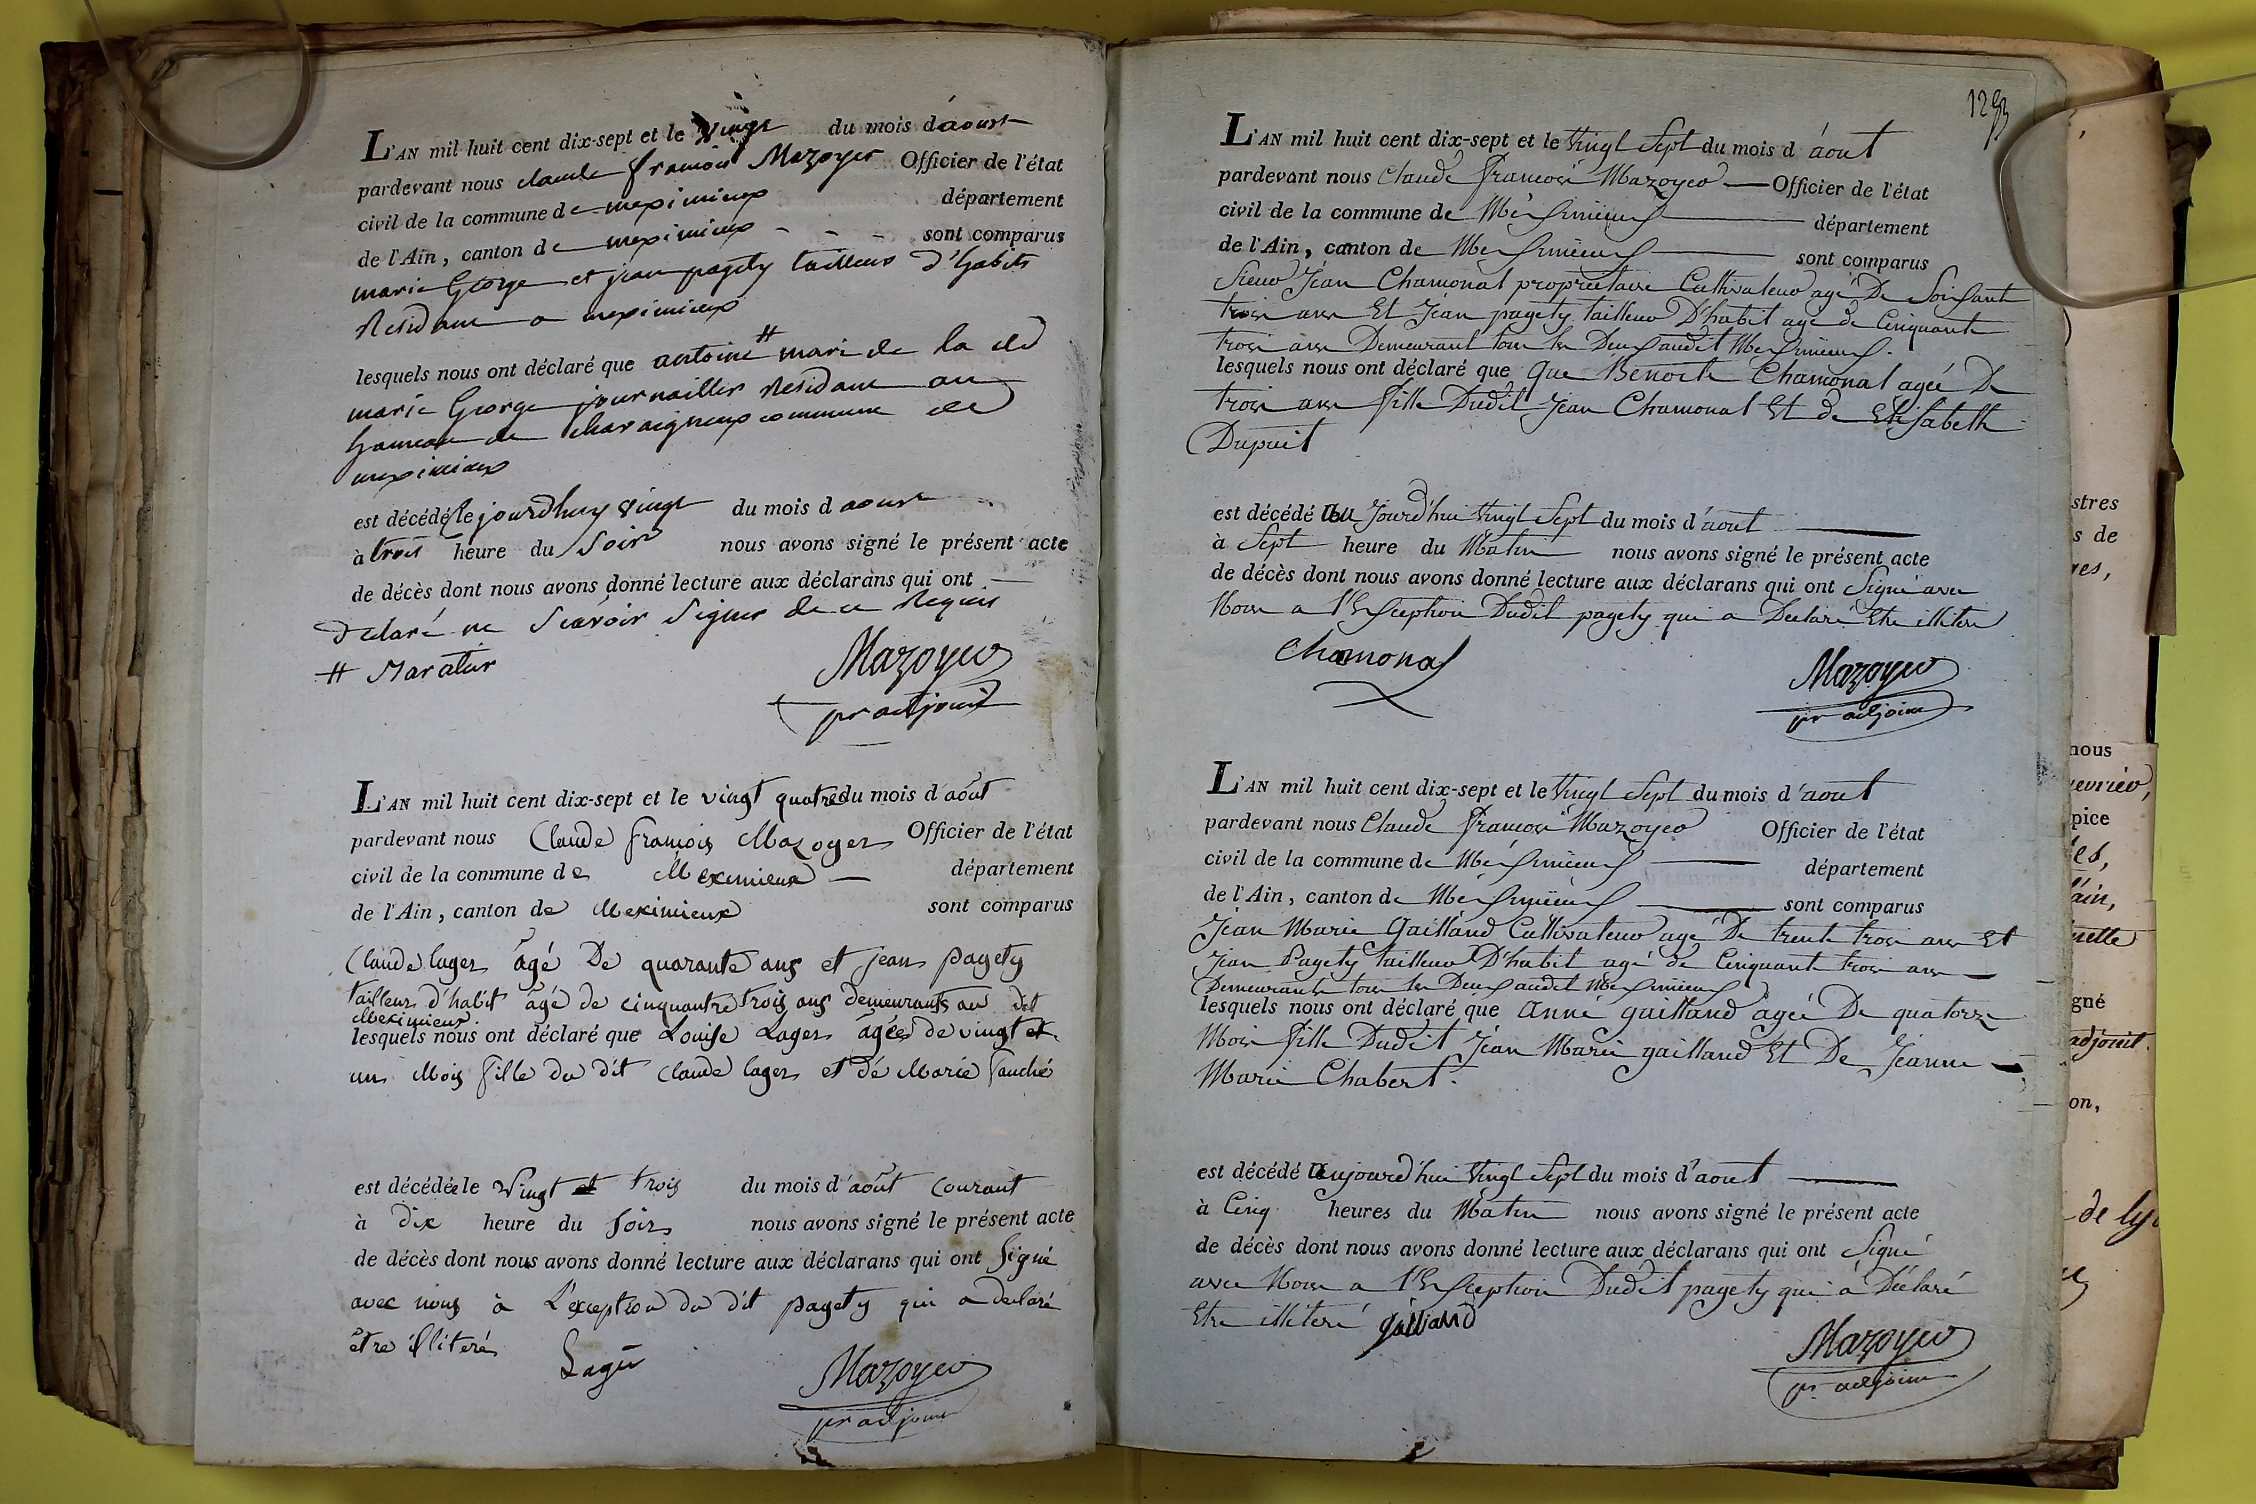 L'AN mil huit cent dix-sept et le vingt du mois d'aoust
pardevant nous claude francois Mazoyer Officier de l'état
civil de la commune de meximieux département
de l'Ain, canton de meximieux - - - sont comparus
marie George et jean pagety tailleur d'habits
Residant a meximieux
lesquels nous ont déclaré que antoine # mari de la de
marie George journaillier Residant au
hameau de charaigneux commune de
meximieux
est décédé le jourdhuy vingt du mois d aoust
à trois heure du Soir nous avons signé le présent acte
de décès dont nous avons donné lecture aux déclarans qui ont
declaré ne scavoir signer de ce Requis
# Maratier
Mazoyer
pr adjoint
L'AN mil huit cent dix-sept et le vingt quatre du mois d'août
pardevant nous Claude françois Mazoyer Officier de l'état
civil de la commune de Meximieux — département
de l'Ain, canton de Meximieux sont comparus
Claude lager âgé De quarante ans et jean pagety
tailleur d'habit âgé de cinquante trois ans demeurants au dit
Meximieux
lesquels nous ont déclaré que Louise Lager âgée de vingt et
un Mois fille du dit Claude lager et dé Marie fauché
est décédée le Vingt et trois du mois d'août courant
à dix heure du soir nous avons signé le présent acte
de décès dont nous avons donné lecture aux déclarans qui ont signé
avec nous à L'exception du dit pagety qui a declaré
être illiteré
Lager
Mazoyer
pr adjoint
L'AN mil huit cent dix-sept et le vingt Sept du mois d'áout
pardevant nous Claude Francois Mazoyer — Officier de l'état
civil de la commune de Méxsimieux — département
de l'Ain, canton de Méxsimieux — sont comparus
Sieur Jean Chamonal propriétaire Cultivateur agé De Soixant
trois ans Et Jéan pagety tailleur D'habit agé de Cinquante
trois ans Demeurant tous les Deux audit Mexsimieux.
lesquels nous ont déclaré que que Benoite Chamonal agée De
trois ans fille Dudit Jean Chamonal Et de Elisabeth
Dupuit
est décédé au Jourd'hui vingt Sept du mois d'aout
à Sept heure du Matin nous avons signé le présent acte
de décès dont nous avons donné lecture aux déclarans qui ont Signé avec
Nous a l'Exseption Dudit pagety qui a Declaré Etre illiteré
Chamonal
Mazoyer
pr adjoint
L'AN mil huit cent dix-sept et le vingt Sept du mois d'aout
pardevant nous Claude Francois Mazoyer Officier de l'état
civil de la commune de Méxsimieux — département
de l'Ain, canton de Méxsimieux — sont comparus
Jéan Marie Gailland Cultivateur agé De trente trois ans Et
Jean Pagety tailleur D'habit agé de Cinquant trois ans
Demeurants tous les Deux audit Mexsimieux
lesquels nous ont déclaré que anne gailland agée De quatorze
Mois fille Dudit Jéan Marie gailland Et De Jéanne
Marie Chabert.
est décédé aujourd'hui vingt Sept du mois d'aout
à Cinq heures du Matin nous avons signé le présent acte
de décès dont nous avons donné lecture aux déclarans qui ont Signé
avec Nous a l'Exseption Dudit pagety qui a Déclaré
Etre illiteré gailland
Mazoyer
pr adjoint
stres
s de
res,
nous
pice
gné
adjoint
on,
de lyo